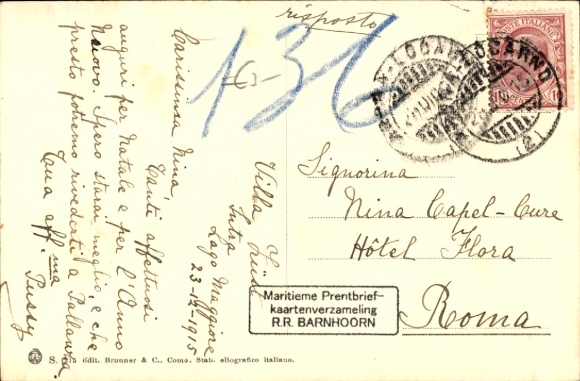 risposto
136
-G-
POSTE ITALIANE
LOCARNO
LOCARNO
(2)
Villa Lüss
Intra
Lago Maggiore
23-12-1915
Carissima Nina,
Tanti affettuosi
auguri per Natale e per l'Anno
Nuovo. Spero starai meglio, e che
presto potremo rivederti a Pallanza.
Tua aff.ma
Pussy
Signorina
Nina Capel-Cure
Hôtel Flora
Roma
Maritieme Prentbrief-
kaartenverzameling
R.R. BARNHOORN
S. 315 Edit. Brunner & C., Como. Stab. eliografico italiano.